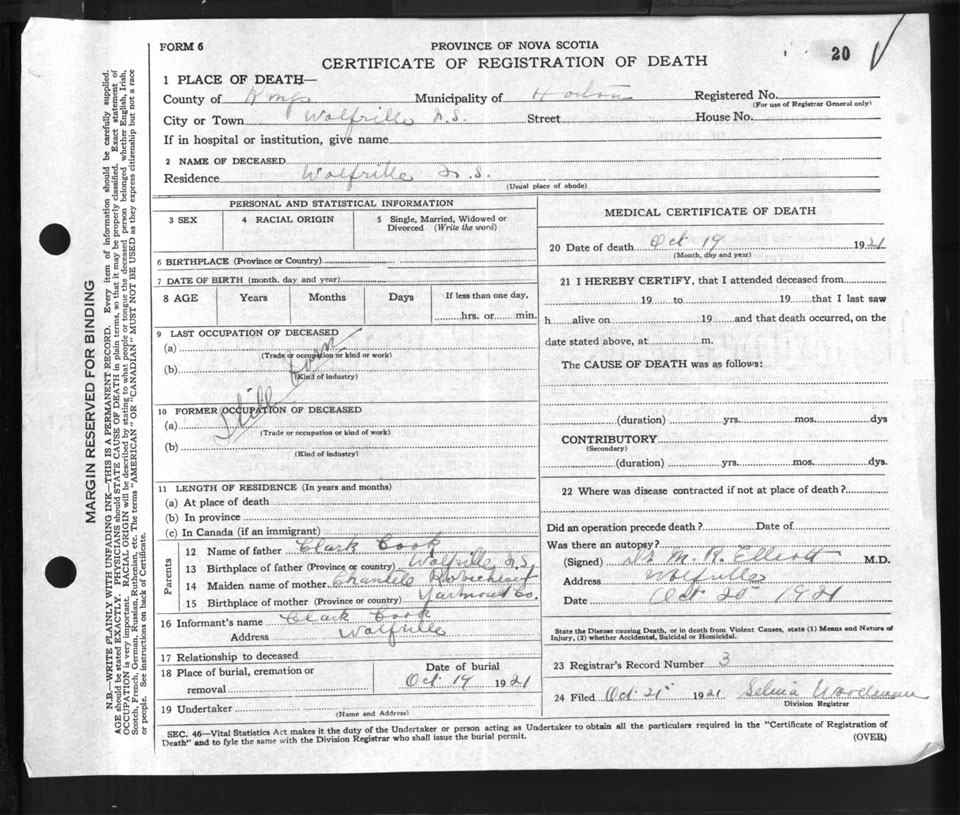 FORM 6
PROVINCE OF NOVA SCOTIA
20
CERTIFICATE OF REGISTRATION OF DEATH
1 PLACE OF DEATH—
County of Kings Municipality of Horton Registered No.
(For use of Registrar General only)
City or Town Wolfville N.S. Street House No.
If in hospital or institution, give name
2 NAME OF DECEASED
Residence Wolfville N.S.
(Usual place of abode)
PERSONAL AND STATISTICAL INFORMATION
3 SEX 4 RACIAL ORIGIN 5 Single, Married, Widowed or Divorced (Write the word)
6 BIRTHPLACE (Province or Country)
7 DATE OF BIRTH (month, day and year)
8 AGE Years Months Days If less than one day,
hrs. or min.
9 LAST OCCUPATION OF DECEASED
(a)
(Trade or occupation or kind or work)
(b)
(Kind of industry)
Still born
10 FORMER OCCUPATION OF DECEASED
(a)
(Trade or occupation or kind of work)
(b)
(Kind of industry)
11 LENGTH OF RESIDENCE (In years and months)
(a) At place of death
(b) In province
(c) In Canada (if an immigrant)
Parents
12 Name of father Clark Cook
13 Birthplace of father (Province or country) Wolfville N.S.
14 Maiden name of mother
15 Birthplace of mother (Province or country) Yarmouth Co.
16 Informant's name Clark Cook
Address Wolfville
17 Relationship to deceased
18 Place of burial, cremation or removal
Date of burial
Oct 19 1921
19 Undertaker
(Name and Address)
MEDICAL CERTIFICATE OF DEATH
20 Date of death Oct 19 1921
(Month, day and year)
21 I HEREBY CERTIFY, that I attended deceased from
19 to 19 that I last saw
h alive on 19 and that death occurred, on the
date stated above, at m.
The CAUSE OF DEATH was as follows:
(duration) yrs. mos. dys
CONTRIBUTORY
(Secondary)
(duration) yrs. mos. dys.
22 Where was disease contracted if not at place of death?
Did an operation precede death? Date of
Was there an autopsy?
(Signed) Dr M. R. Elliott M.D.
Address Wolfville
Date Oct 20 1921
State the Disease causing Death, or in death from Violent Causes, state (1) Means and Nature of
Injury, (2) whether Accidental, Suicidal or Homicidal.
23 Registrar's Record Number 3
24 Filed Oct 21 1921 Selina
Division Registrar
SEC. 46—Vital Statistics Act makes it the duty of the Undertaker or person acting as Undertaker to obtain all the particulars required in the "Certificate of Registration of
Death" and to fyle the same with the Division Registrar who shall issue the burial permit.
(OVER)
MARGIN RESERVED FOR BINDING
N.B.—WRITE PLAINLY WITH UNFADING INK—THIS IS A PERMANENT RECORD. Every item of information should be carefully supplied.
AGE should be stated EXACTLY. PHYSICIANS should STATE CAUSE OF DEATH in plain terms, so that it may be properly classified. Exact statement of
OCCUPATION is very important. RACIAL ORIGIN will be described by stating to what people or tongue the deceased person belonged whether English, Irish,
Scotch, French, German, Russian, Ruthenian, etc. The terms "AMERICAN" OR "CANADIAN" MUST NOT BE USED as they express citizenship but not a race
or people. See instructions on back of Certificate.